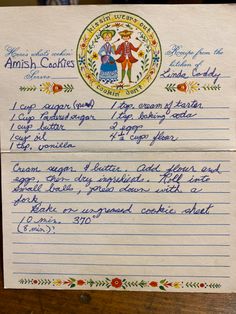 Kissin' wears out
cookin' don't
Here's what's cookin'
Amish Cookies
Serves
Recipe from the
kitchen of
Linda Caddy
1 cup sugar (gran) 1 tsp. cream of tarter
1 Cup Powdered sugar 1 tsp. baking soda
1 cup butter 2 eggs
1 cup oil 4 ½ cups flour
1 tsp. vanilla
Cream sugar & butter. Add flour and
eggs, then dry ingredients. Roll into
small balls, press down with a
fork
Bake on ungreased cookie sheet
10 min. 370°
(8 min):